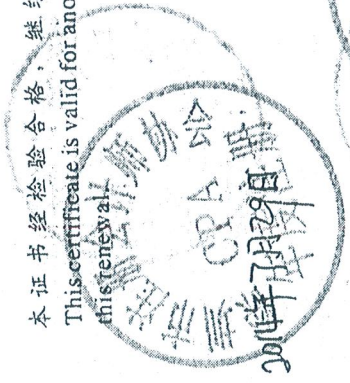 本证书经检验合格，继
This certificate is valid for ano
this renewal.
注册会计师协会
CPA
2014年7月29日